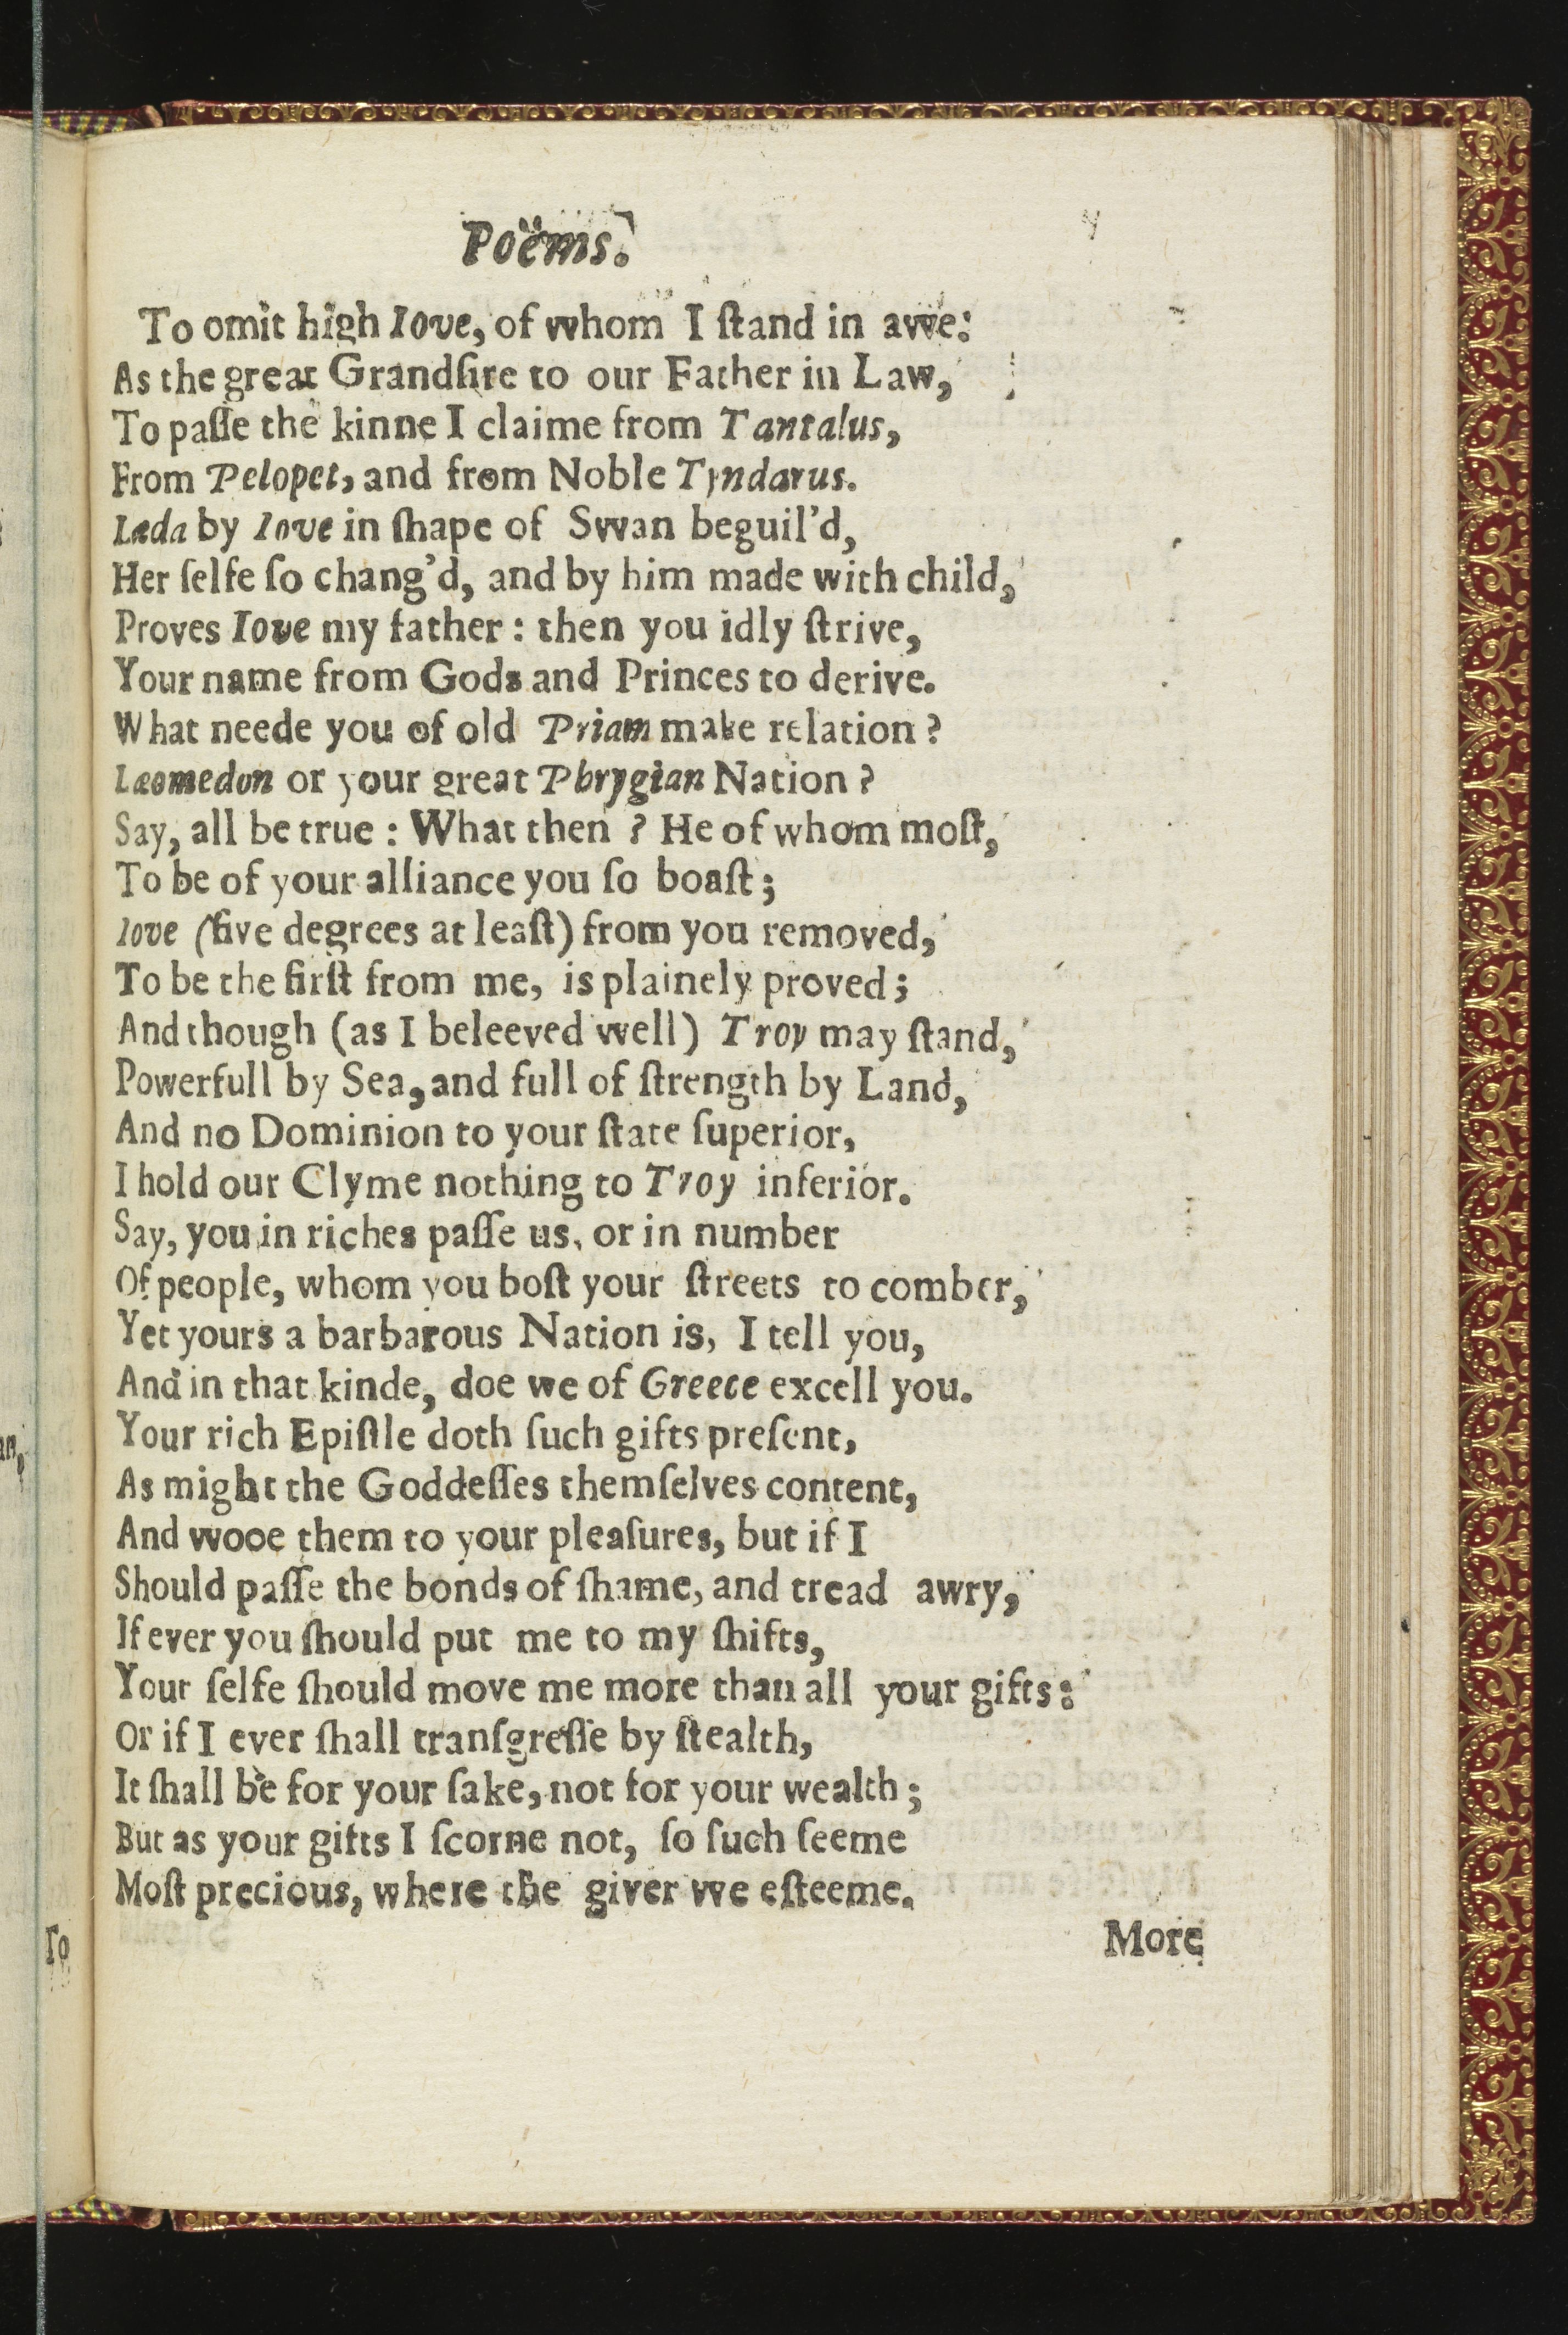 Poëms.
To omit high Iove, of whom I ſtand in awe:
As the great Grandſire to our Father in Law,
To paſſe the kinne I claime from Tantalus,
From Pelopet, and from Noble Tyndarus.
Læda by Iove in ſhape of Swan beguil'd,
Her ſelfe ſo chang'd, and by him made with child,
Proves Iove my father: then you idly ſtrive,
Your name from Gods and Princes to derive.
What neede you of old Priam make relation?
Laomedon or your great Phrygian Nation?
Say, all be true: What then? He of whom moſt,
To be of your alliance you ſo boaſt;
Iove (five degrees at leaſt) from you removed,
To be the firſt from me, is plainely proved;
And though (as I beleeved well) Troy may ſtand,
Powerfull by Sea, and full of ſtrength by Land,
And no Dominion to your ſtate ſuperior,
I hold our Clyme nothing to Troy inferior.
Say, you in riches paſſe us, or in number
Of people, whom you boſt your ſtreets to comber,
Yet yours a barbarous Nation is, I tell you,
And in that kinde, doe we of Greece excell you.
Your rich Epiſtle doth ſuch gifts preſent,
As might the Goddeſſes themſelves content,
And wooe them to your pleaſures, but if I
Should paſſe the bonds of ſhame, and tread awry,
If ever you ſhould put me to my ſhifts,
Your ſelfe ſhould move me more than all your gifts:
Or if I ever ſhall tranſgreſſe by ſtealth,
It ſhall be for your ſake, not for your wealth;
But as your gifts I ſcorne not, ſo ſuch ſeeme
Moſt precious, where the giver we eſteeme.
More
To